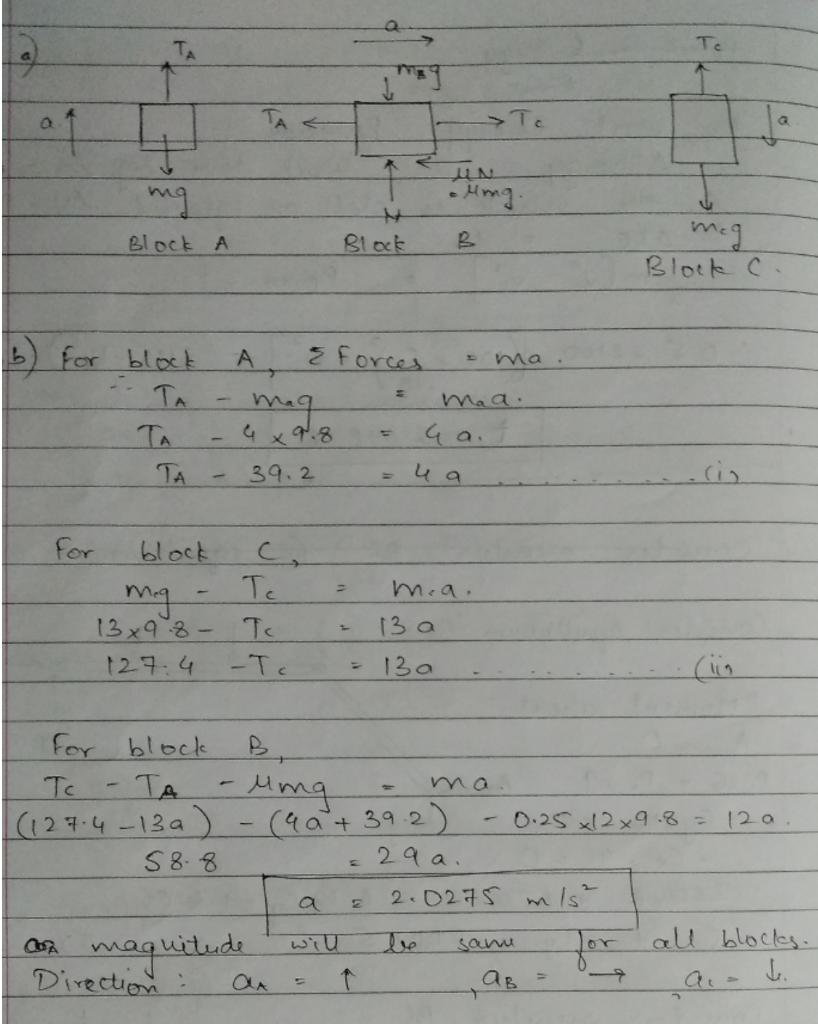 a)
a
TA
mBg
Tc
a
TA
Tc
a
μN
= μmg.
mg
N
mcg
Block A
Block B
Block C.
b) For block A, Σ Forces = ma.
∴ TA - mAg = mAa.
TA - 4 x 9.8 = 4a.
TA - 39.2 = 4a .......... (i)
For block C,
mcg - Tc = mca.
13x9.8 - Tc = 13a
127.4 - Tc = 13a .......... (ii)
For block B,
Tc - TA - μmg = ma.
(127.4 - 13a) - (4a + 39.2) - 0.25 x12 x9.8 = 12a.
58.8 = 29a.
a = 2.0275 m/s²
magnitude will be same for all blocks.
Direction: aA = ↑ , aB = → , ac = ↓.